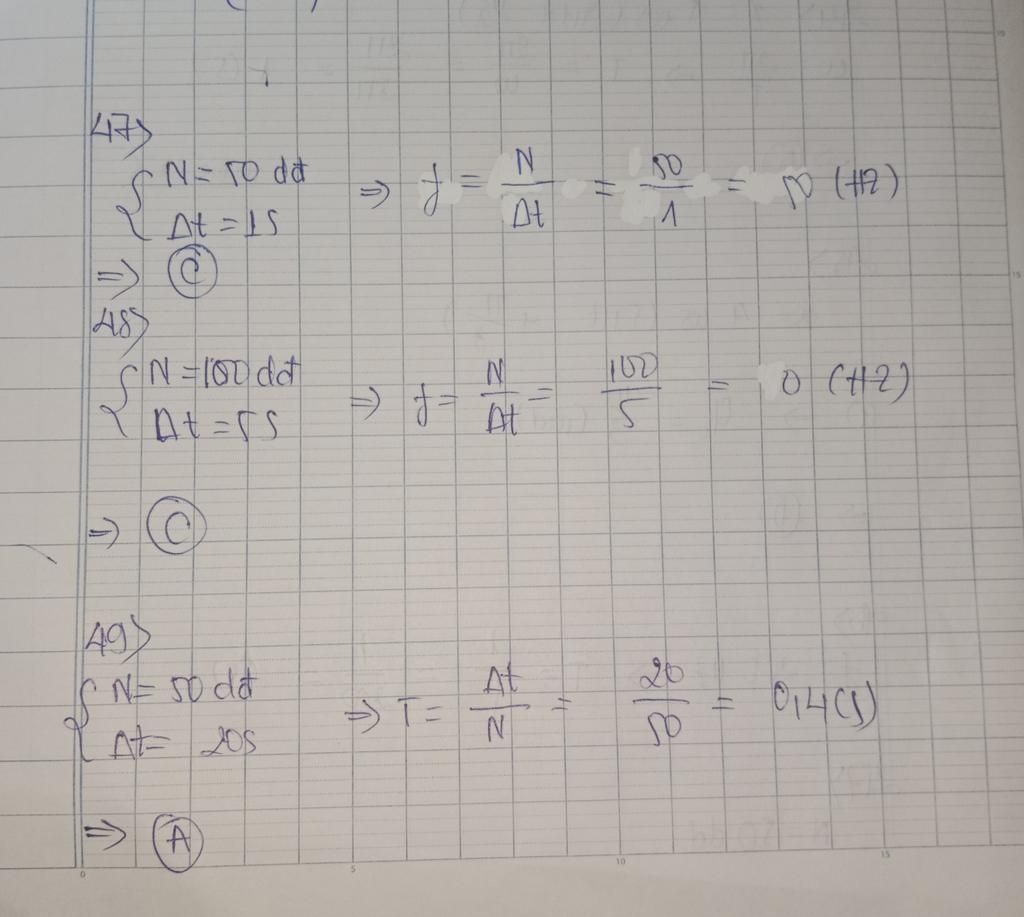 47>
{ N = 50 dđ
Δt = 1s
⇒ f = N/Δt = 50/1 = 50 (Hz)
⇒ C
48>
{ N = 100 dđ
Δt = 5s
⇒ f = N/Δt = 100/5 = 0 (Hz)
⇒ C
49>
{ N = 50 dđ
Δt = 20s
⇒ T = Δt/N = 20/50 = 0,4 (s)
⇒ A
0 5 10 15